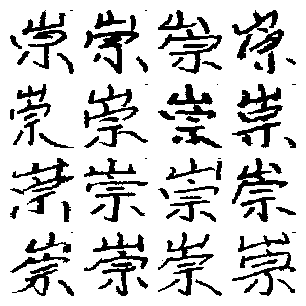 崇崇崇崇
崇崇崇崇
崇崇崇崇
崇崇崇崇